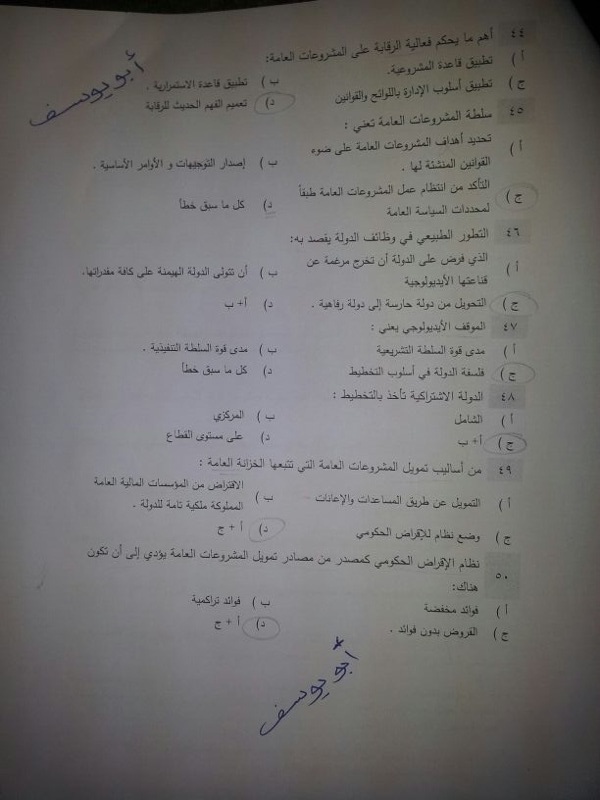 ٤٤ أهم ما يحكم فعالية الرقابة على المشروعات العامة:
أ ) تطبيق قاعدة المشروعية. ب ) تطبيق قاعدة الاستمرارية .
ج ) تطبيق أسلوب الإدارة باللوائح والقوانين د) تعميم الفهم الحديث للرقابة
٤٥ سلطة المشروعات العامة تعني :
أ ) تحديد أهداف المشروعات العامة على ضوء القوانين المنشئة لها . ب ) إصدار التوجيهات و الأوامر الأساسية .
ج ) التأكد من انتظام عمل المشروعات العامة طبقاً لمحددات السياسة العامة د) كل ما سبق خطأ
٤٦ التطور الطبيعي في وظائف الدولة يقصد به:
أ ) الذي فرض على الدولة أن تخرج مرغمة عن قناعتها الأيديولوجية ب ) أن تتولى الدولة الهيمنة على كافة مقدراتها.
ج ) التحويل من دولة حارسة إلى دولة رفاهية . د) أ+ ب
٤٧ الموقف الأيديولوجي يعني :
أ ) مدى قوة السلطة التشريعية ب ) مدى قوة السلطة التنفيذية .
ج ) فلسفة الدولة في أسلوب التخطيط د) كل ما سبق خطأ
٤٨ الدولة الاشتراكية تأخذ بالتخطيط :
أ ) الشامل ب ) المركزي
ج ) أ+ ب د) على مستوى القطاع
٤٩ من أساليب تمويل المشروعات العامة التي تتبعها الخزانة العامة :
أ ) التمويل عن طريق المساعدات والإعانات ب ) الاقتراض من المؤسسات المالية العامة المملوكة ملكية تامة للدولة .
ج ) وضع نظام للإقراض الحكومي د) أ + ج
٥٠ نظام الإقراض الحكومي كمصدر من مصادر تمويل المشروعات العامة يؤدي إلى أن تكون هناك:
أ ) فوائد مخفضة ب ) فوائد تراكمية
ج ) القروض بدون فوائد . د) أ + ج
أبو يوسف
أبو يوسف